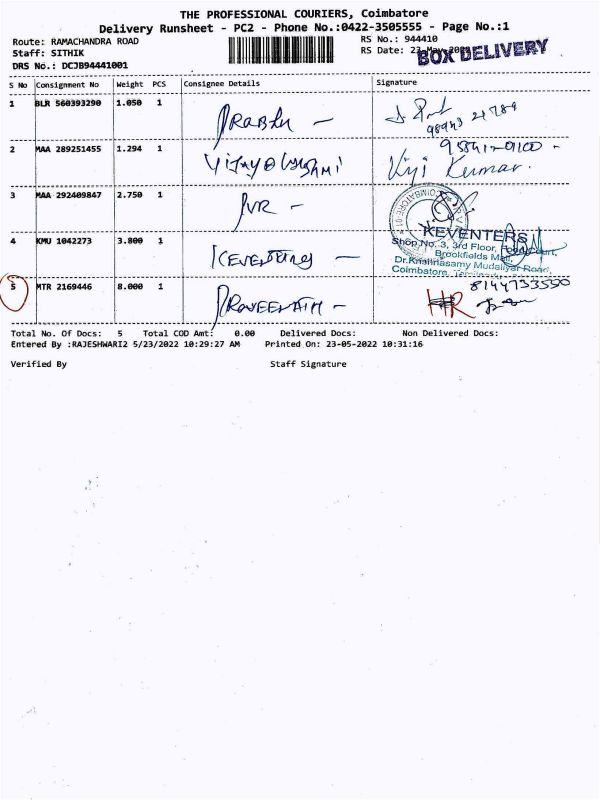 THE PROFESSIONAL COURIERS, Coimbatore
Delivery Runsheet - PC2 - Phone No.:0422-3505555 - Page No.:1
Route: RAMACHANDRA ROAD RS No.: 944410
Staff: SITHIK RS Date: 23-May-2022 BOX DELIVERY
DRS No.: DCJB94441001
S No Consignment No Weight PCS Consignee Details Signature
1 BLR 560393290 1.050 1 PRABHU -
2 MAA 289251455 1.294 1 Viji Kumar.
3 MAA 292409847 2.750 1
4 KMU 1042273 3.800 1 KEVENTERS
Shop No. 3, 3rd Floor, Food Court,
Brookfields Mall,
Dr.Krishnasamy Mudaliyar Road,
Coimbatore,
5 MTR 2169446 8.000 1 HR 8144733530
Total No. Of Docs: 5 Total COD Amt: 0.00 Delivered Docs: Non Delivered Docs:
Entered By :RAJESHWARI2 5/23/2022 10:29:27 AM Printed On: 23-05-2022 10:31:16
Verified By Staff Signature